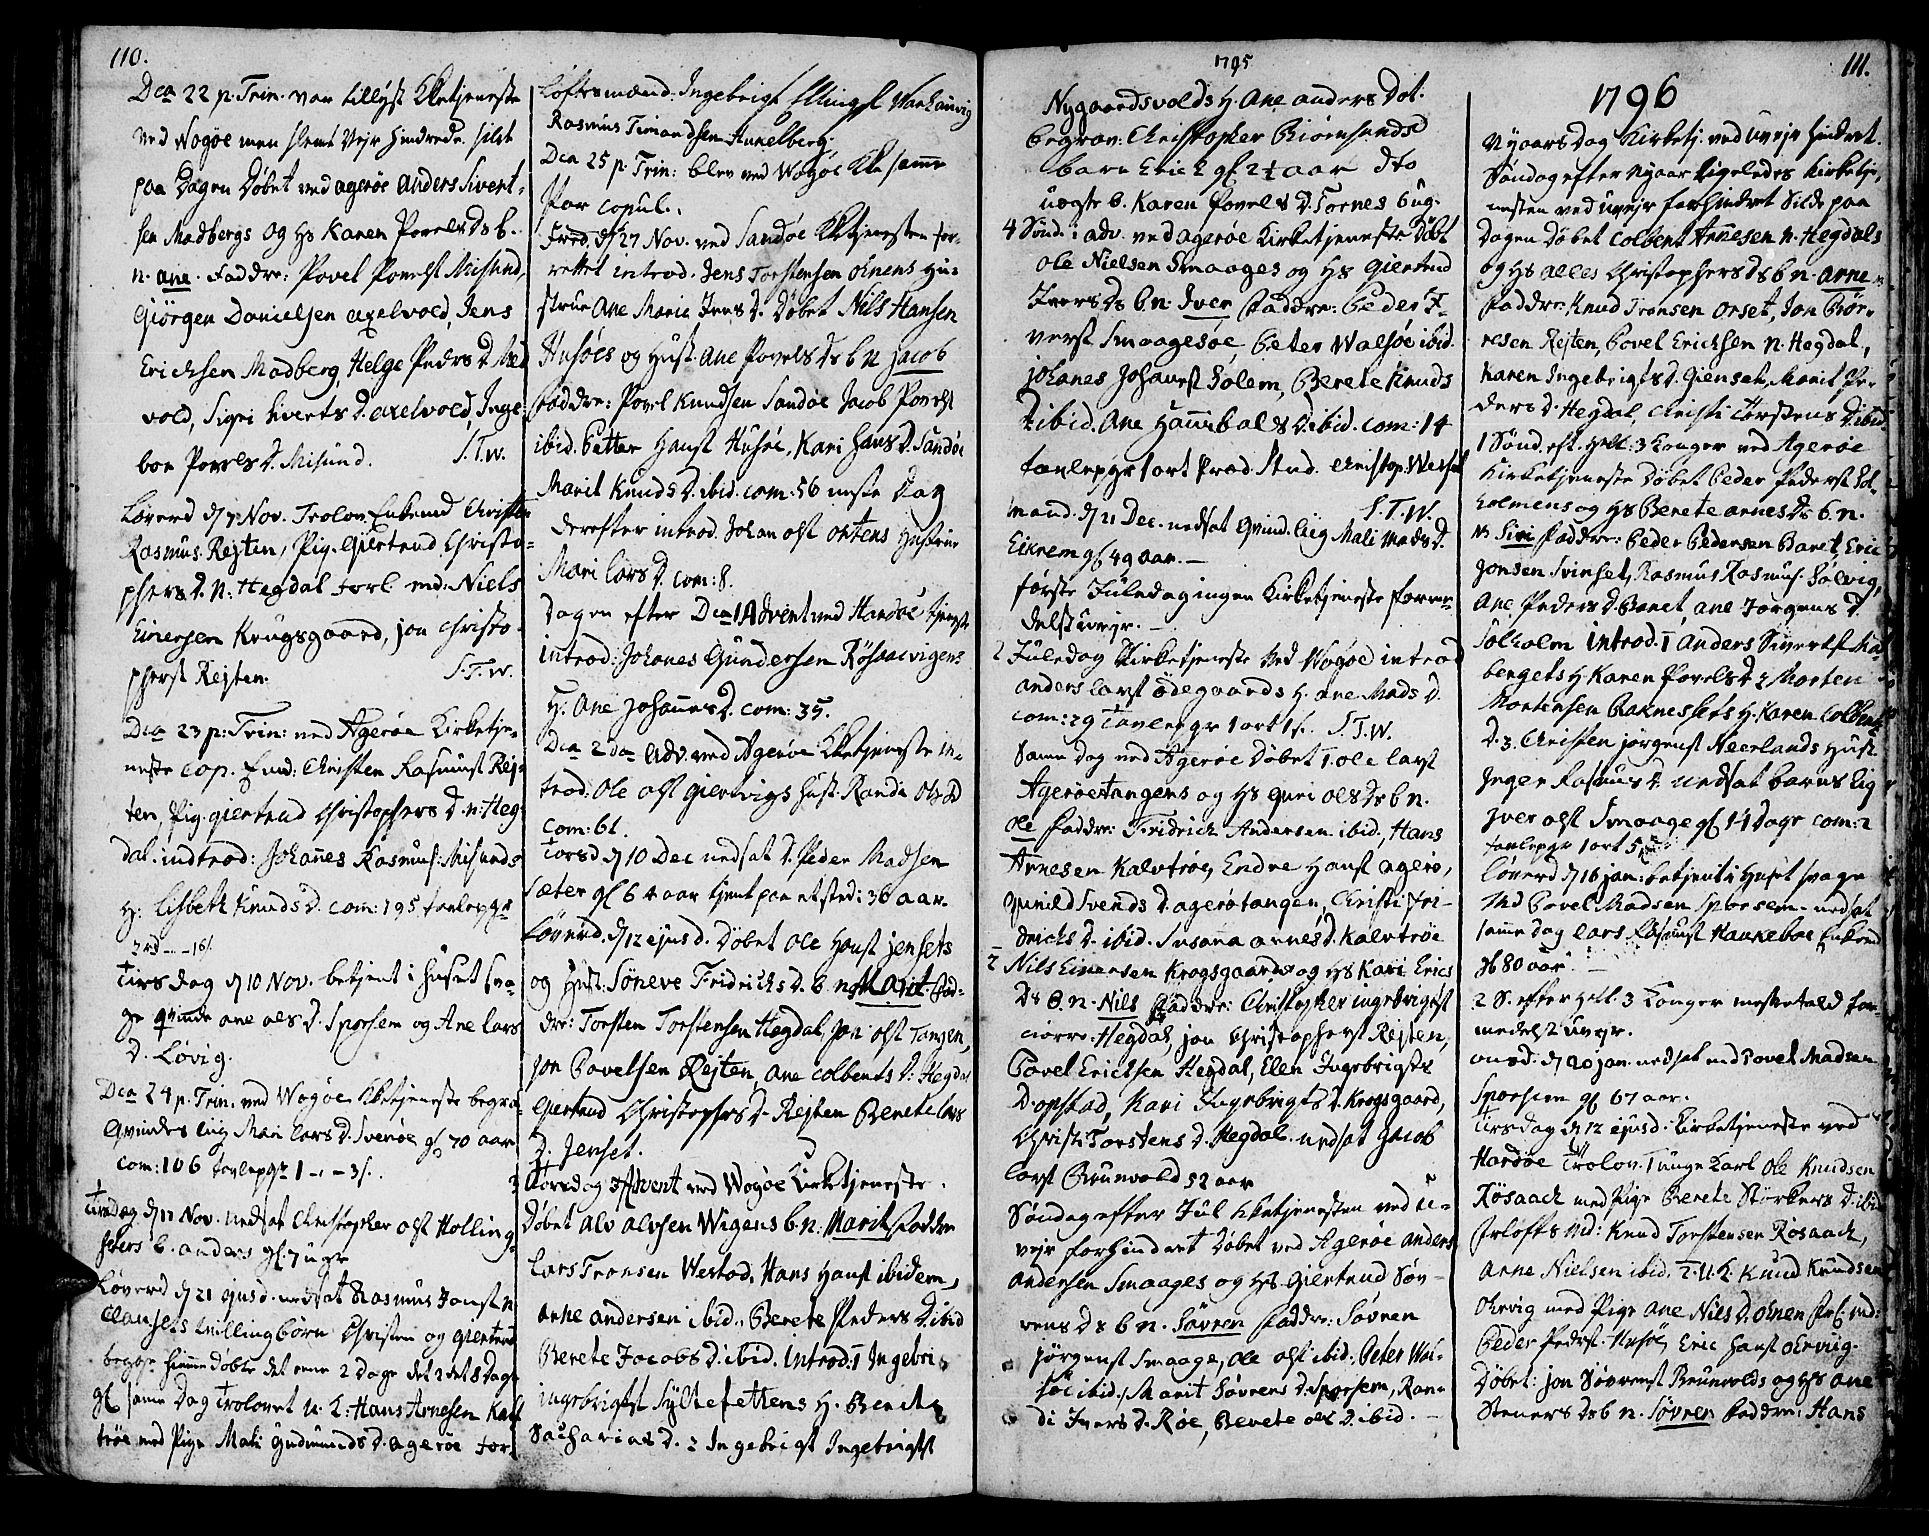 110.
Dca 22 p. Trin. var tillyst Kketjeneste
ved Wogøe men slemt Vejr hindrede. silde
paa Dagen Døbet ved agerøe Anders Sivert-
sen Madbergs og Hs Karen Povels Ds b.
n. ane. Faddre: Povel Povelst Misund,
Giörgen Danielsen axelvold, Jens
Erichsen Madberg, Helge Peders D. Med
vold, Sigri Siverts D. axelvold, Inge
boe Povels D. Misund. S.T.W.
Løverd d 7 Nov. Trolov. Enkemd Christen
Rasmus. Rejten, Pig. Giertrud Christo-
phers D. N: Hegdal forl. md: Niels
Einersen Krugsgaard, jon Christo-
pherst Rejten. S.T.W.
Dca 23 p: Trin: ved Agerøe Kirketje-
neste cop. Emd: Christen Rasmust Rej-
ten, Pig. giertrud Christophers D. n: Heg
dal. indtrod: Johanes Rasmus: Misunds
H: Lisbeth Knuds D. com: 195 tavlepge
2rd - - 16s
Tirsdag d 10 Nov. betjent i Huset sva-
ge qvinde ane ols D. Sporsem og Ane Lars
D. Løvig.
Dca 24 p. Trin. ved Wogøe Kketjeneste begra-
qvindes liig Mari Lars D. Svenøe gl 70 aar
com: 106 tavlepge 1 - - 3s.
Tirsdag d 17 Nov. nedsat Christopher olst Holling-
seters b. anders gl. 7 uge
Løverd d 21 ejusd. nedsat Rasmus Jonst N.
Clausets tvillingbørn Christen og giertrud
begge hiemme Døbte det eene 2 Dage det 2det 8 Dage
gl samme Dag Trolovet u. K: Hans Arnesen Kalf
trøe med Pige Mali Gudmunds D. agerøe for-
løftsmænd: Ingebrigt Ellingst Workenvig
Rasmus Timandsen Annelberg.
Dca 25 p: Trin: blev ved Wogøe Kke samme
Par copul.
Fred. d 27 Nov. ved Sandøe Kketjenesten for-
rettet introd. Jens Torstensen ohnens Hu-
strue Ane Marie Ivers D. Døbet Nils Hansen
Husøes og Hust. Ane Povels Ds b N Jacob
Faddre: Povel Knudsen Sandøe Jacob Povelst
ibid. Petter Hanst Husøe, Kari Hans D. Sandøe
Marit Knuds D. ibid. com: 56 neste Dag
derefter introd. Johan olst ortens Hustrue
Mari Lars D. com: 8.
Dagen efter Dca 1 Advent ved Hardøe tjeneste
introd: Johanes Gundersen Røsaaevigens
H. Ane Johannes D. com: 35.
Dca 2da adv. ved Agerøe Kketjeneste in-
trod: Ole olst giervigs Hust. Randi Ols D
com: 61.
Torsd d 10 Dec nedsat D. Peder Madsen
Sæter gl 64 aar tjent paa et sted i 36 aar.
Løverd. d 12 ejusd. Døbet Ole Hanst Jensets
og Hust: Søneve Fridrichs D. b. n. Marit Fad-
dre: Torsten Torstensen Hegdal, Jon olst Tangen,
Jon Povelsen Rejten, Ane Colbents D. Hegdal
Giertrud Christophers D. Rejten Berete Lars
D. Jenset.
Torsdag 3 Advent ved Wogøe Kirketjeneste.
Døbet Alv alvsen Wigens b n. Marit Faddre
Lars Tronsen Westad, Hans Hanst ibidem,
Arne andersen ibid., Berete Peders D. ibid
Berete Jacobs D. ibid. introd: 1 Ingebri
ingebrigtst Syltefettens H. Berite
Sacharias D. 2 Ingebrigt Ingebrigtst
1795
Nygaardsvolds H. Ane anders Dot.
begrav. Christopher Biørnsunds
barn Erick gl 2½ aar dto
uægte b. Karen Povels D. Tornes 6 ug.
4 Sønd. i adv. ved agerøe Kirketjeneste Døbt
Ole Nielsen Smaages og Hs Giertrud
Ivers Ds b n. Iver Faddre: Peder I-
verst Smaagesøe, Peter Walsøe ibid.
johanes Johanst Solem, Berete Knuds
D. ibid. Ane Hannibals D. ibid. com: 14
tavlepge 1 ort Præd. Stud. Christop. Wessel
S.T.W.
mand. d 21 Dec. nedsat qvindeliig Mali Mads D.
Eikrem gl 49 aar. –
første Juledag ingen Kirketjeneste forme-
delst uvejr. –
2 Juledag Kirketjeneste ved Wogøe introd
anders larst ødegaards H. ane Mads D.
com: 29 Tavlepge 1 ort 1s. S.T.W.
Same dag ved Agerøe Døbet 1. ole larst
Agerøetangens og Hs guri ols Ds b n.
ole Faddre: Fridrich Andersen ibid., Hans
Arnesen Kalvtrøe, Endre Hanst agerø,
gunild Svends D. agerøtangen, Christi Fri-
drichs D. ibid. Susana arnes D. Kalvtrøe
2 Nils Einersen Krogsgaards og Hs Kari Erics
Ds b. n. Nils Faddre: Christopher ingebrigtst
Hegdal, jon Christopherst Rejten,
Povel Erichsen Hegdal, Elen Ingebrigts
D. opstad, Kari Ingebrigts D. Krogsgaard,
Christi Torstens D. Hegdal. nedsat Jacob
larst Brunvold 52 aar
Søndag efter Jul Kketjenesten ved u-
vejr forhindret Døbet ved Agerøe anders
Andersen Smaages og Hs. Giertrud Søv-
rens Ds b n. Søvren Faddre: Søvren
Jörgenst Smaage, Ole olst ibid: Peter Wal-
søe ibid., Marit Søvrens D. Sporsem, Ran-
di Ivers D. Røe, Berete ols D. ibid. –
111.
1796
Nyaars Dag Kirketj: ved uvejr hindret.
Søndag efter Nyaar ligeledes Kirketje-
nesten ved uvejr forhindret Silde paa
Dagen Døbet Colbent Arnesen N. Hegdals
og Hs alles Christophers Ds b n. Arne.
Faddre: Knud Tronsen orset, Jon Biør-
resen Rejten, Povel Erichsen N. Hegdal,
Karen Ingebrigts D. Gienset, Marit Pe-
ders D. Hegdal, Christi Torstens D. ibid
1 Sønd. eft. Hell: 3 Konger ved Agerøe
Kirketjeneste Døbet Peder Pederst Sol-
holmens og Hs Berete arnes Ds b. n.
Siri Faddre: Peder Pedersen Baret, Eric
Jonsen Svinset, Rasmus Rasmus: Solvig,
Ane Peders D. Baret, ane Jorgens D.
Solholm introd. 1 anders Siverst Ma
bergets H. Karen Povels D 2 Morten
Mortensen Raknessets H. Karen Colbents
D. 3. Christen jørgenst Neerlands Hust
Inger Rasmus D. nedsat barns liig
Iver olst Smaage gl 14 Dage com: 2
tavlepge 1 ort 5 s
Løverd d 16 jan: betjent i Huset svage
Md Povel Madsen Sporsem. nedsat
samme dag lars Rasmust Haukeboe Enkemd
gl 80 aar. –
2 S. efter Hell. 3 Konger messefald for-
medelst uvejr.
onsd. d 20 jan. nedsat md Povel Madsen
Sporsem gl 67 aar.
Tirsdag d 12 ejusd. Kirketjeneste ved
Hardøe Trolov. 1 unge Karl Ole Knudsen
Røsaack med Pige Berete Størkers D. ibid
Forlofts Md: Knud Torstensen Rosaack,
Arne Nielsen ibid. 2. u. K. Knud Knudsen
Ohrvig med Pige Ane Nils D. ohnen Frl. md:
Peder Pederst. Husøe, Eric Hanst ohrvig.
Døbet: jon Søvrenst Brunvolds og Hs ane
Steners Ds b n. Søvren Faddre: Hans